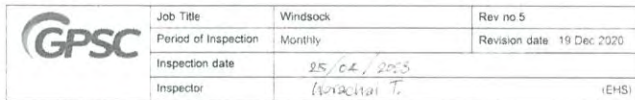 GPSC
Job Title Windsock Rev no 5
Period of Inspection Monthly Revision date 19 Dec 2020
Inspection date 25/04/2023
Inspector Worachai T. (EHS)